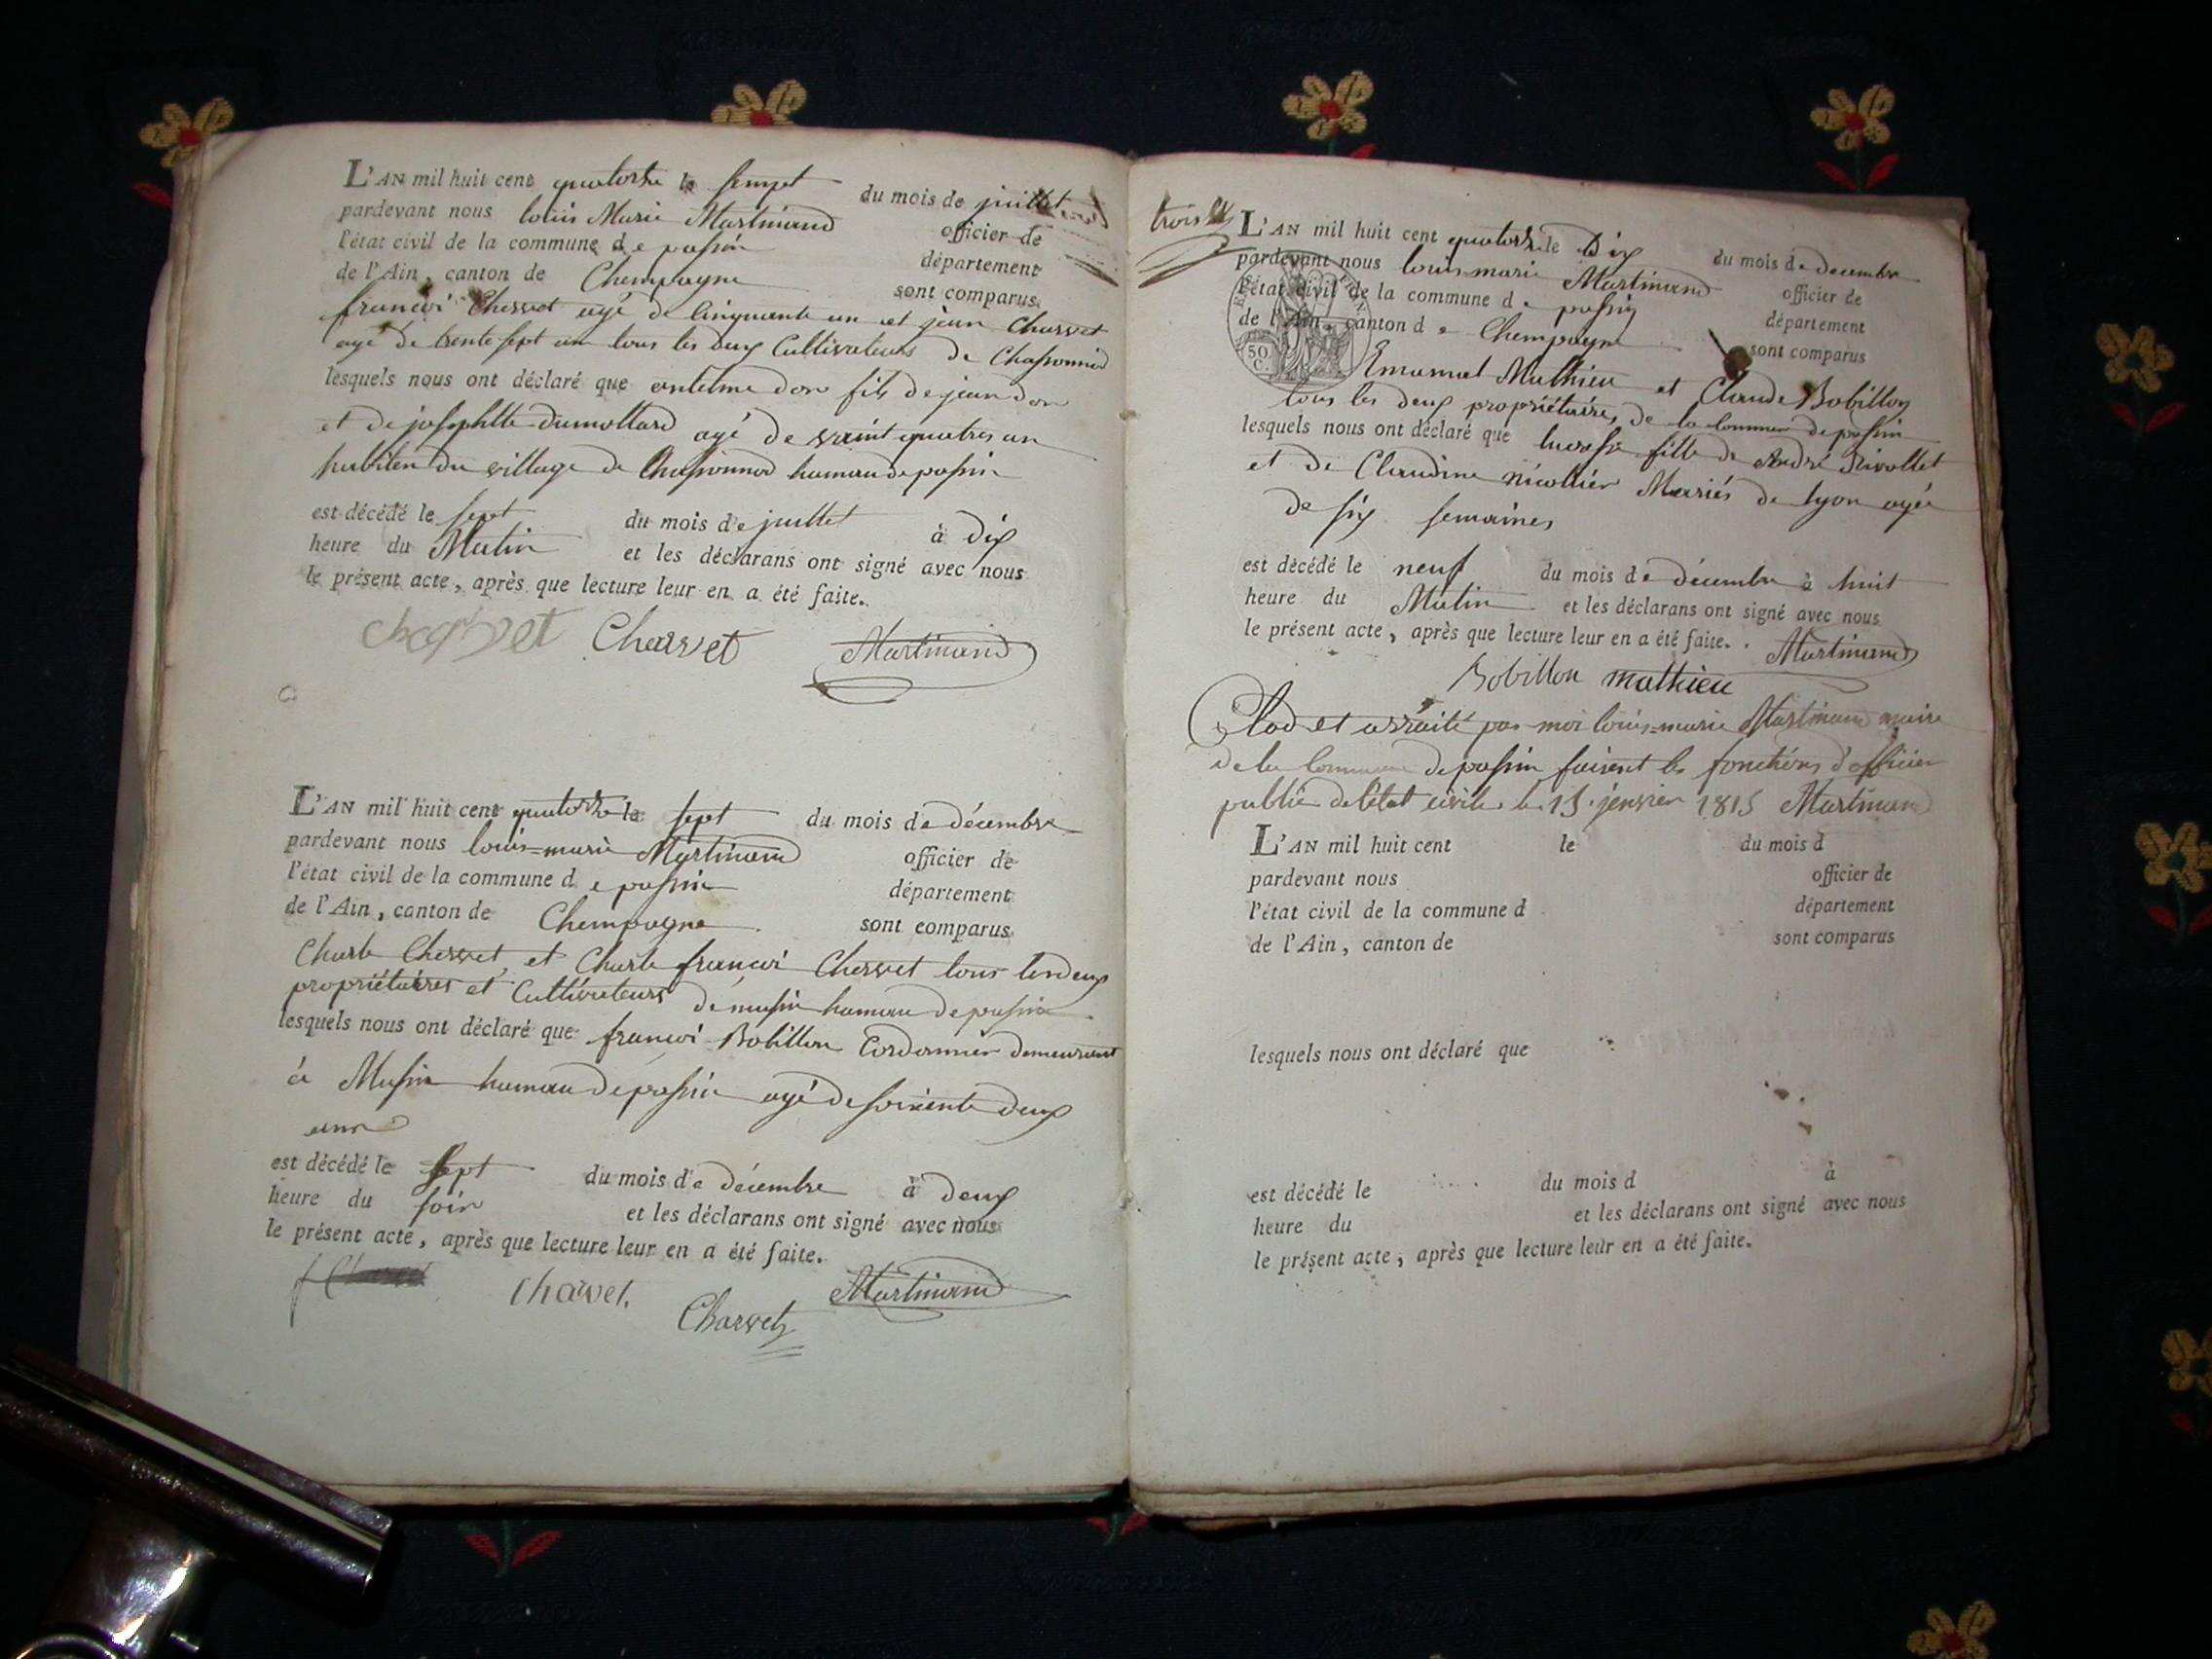 L'AN mil huit cent quatorse le sempt du mois de juillet
pardevant nous louis Marie Martinand officier de
l'état civil de la commune de passin département
de l'Ain, canton de Chempagne sont comparus
françoi Chervet agé de Cinquante un et jean Charvet
agé de trente sept an tous les deux Cultivateurs de Chassonnod
lesquels nous ont déclaré que antelme don fils de jean don
et de josephtte dumollard agé de vuint quatres an
habiten du village de Chassonnod hamau de passin
est décédé le sept du mois de juillet à dix
heure du Matin et les déclarans ont signé avec nous
le présent acte, après que lecture leur en a été faite.
charvet Charvet Martinand
L'AN mil huit cent quatorse le sept du mois de décembre
pardevant nous louis=marie Martinand officier de
l'état civil de la commune de passin département
de l'Ain, canton de Chempagne sont comparus
Charle Chervet et Charle françoi Chervet tous lesdeux
propriétaires et Cultivateurs de musin hamau de passin
lesquels nous ont déclaré que françoi Bobillon Cordonnier demeurant
à Musin hamau de passin agé de soixente deux
ans
est décédé le sept du mois de décembre à deux
heure du soir et les déclarans ont signé avec nous
le présent acte, après que lecture leur en a été faite.
Charvet. Charvet Martinand
trois
L'AN mil huit cent quatorse le Dix du mois de decembre
pardevant nous louis=marie Martinand officier de
l'état civil de la commune de passin département
de l'Ain, canton de Chempagne sont comparus
50 C.
Emanuel Mathieu et Claude Bobillon
tous les deux propriétaires de la Commune de passin
lesquels nous ont déclaré que lucresse fille de André Rivollet
et de Claudine Nicollier Mariés de lyon agée
de six semaines
est décédé le neuf du mois de décembre à huit
heure du Matin et les déclarans ont signé avec nous
le présent acte, après que lecture leur en a été faite. Martinand
Bobillon mathieu
Clod et arraité par moi louis=marie Martinand maire
de la Commune de passin faisent les fonctions d'officier
public de l'état civile le 15 jenvier 1815 Martinand
L'AN mil huit cent le du mois d
pardevant nous officier de
l'état civil de la commune d département
de l'Ain, canton de sont comparus
lesquels nous ont déclaré que
est décédé le du mois d à
heure du et les déclarans ont signé avec nous
le présent acte, après que lecture leur en a été faite.